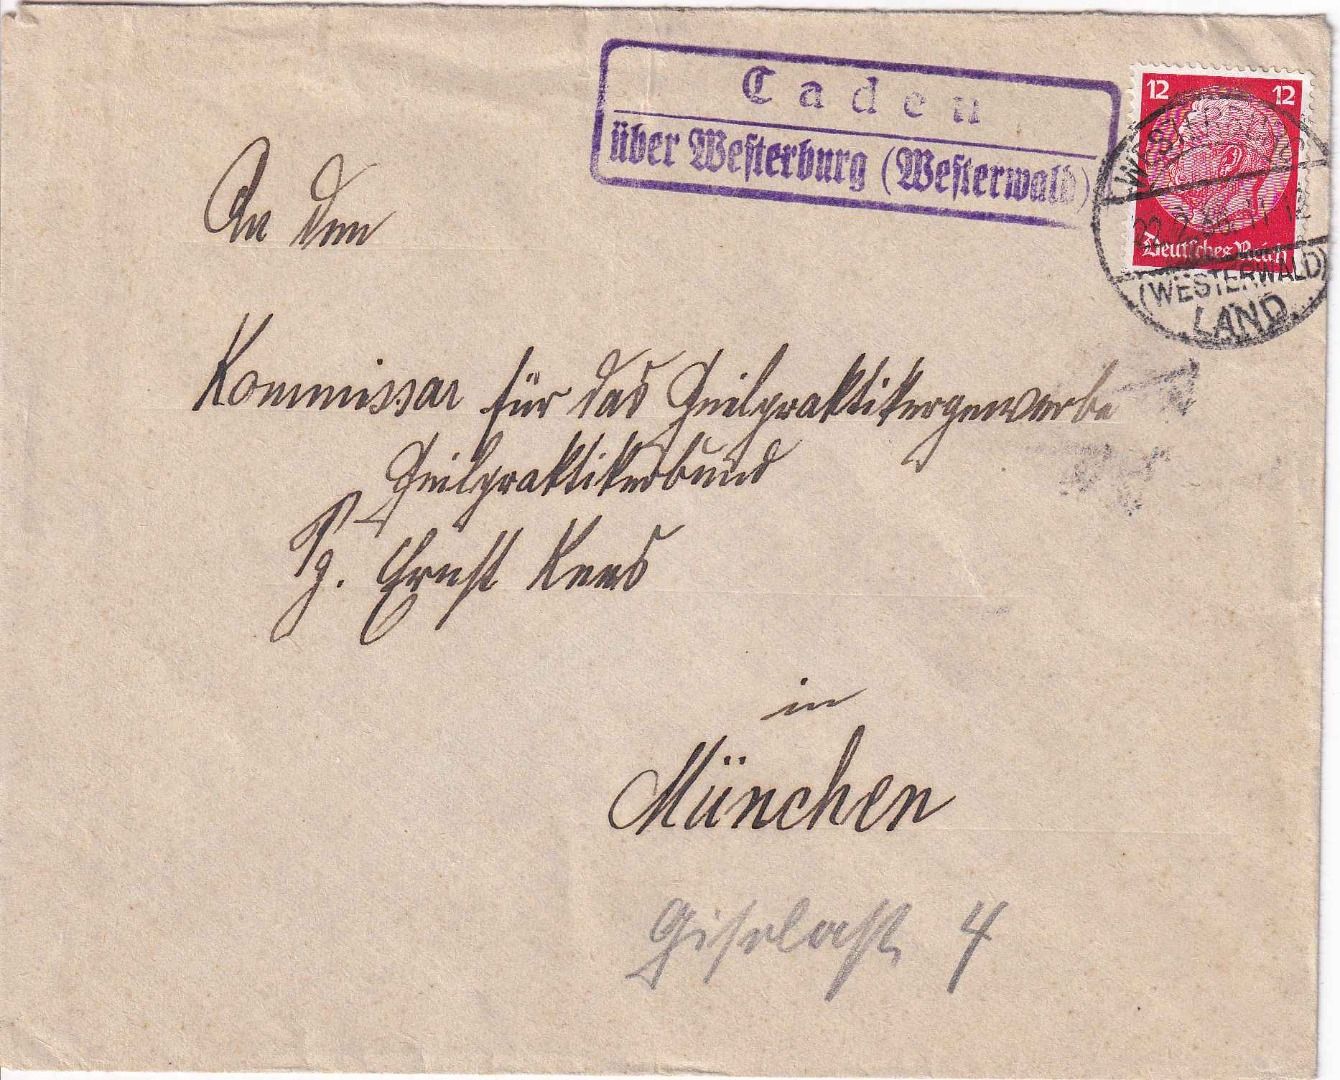 Caden
über Westerburg (Westerwald)
12 12
WESTERBURG
22.2.35.11-12
Deutsches Reich
(WESTERWALD)
LAND
An den
Kommissar für das Heilpraktikergewerbe
Heilpraktikerbund
Pg. Ernst Kees
in
München
Giselastr 4